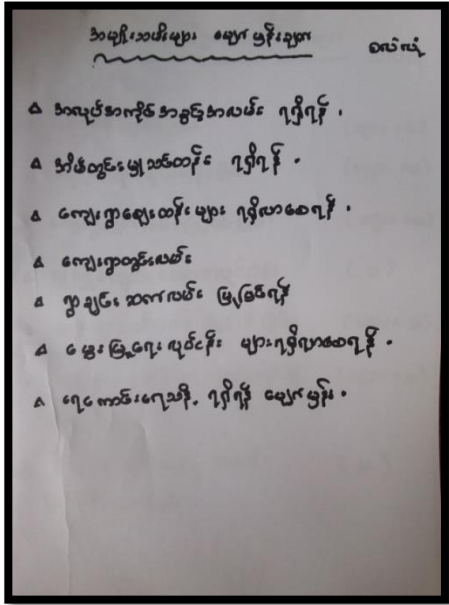 အမျိုးသမီးများ မျှော်မှန်းချက် စလုံလုံ
အလုပ်အကိုင်အခွင့်အလမ်း ရရှိရန် .
အိမ်တွင်းမှုသင်တန်း ရရှိရန် .
ကျေးရွာဈေးတန်းများ ရရှိလာစေရန် .
ကျေးရွာတွင်းလမ်း
ရွာချင်းဆက်လမ်း မြှုမြှင်ရန်
မွေးမြူရေးလုပ်ငန်း များရရှိလာစေရန် .
ရေကောင်းရေသန့် ရရှိရန် မျှော်မှန်း .